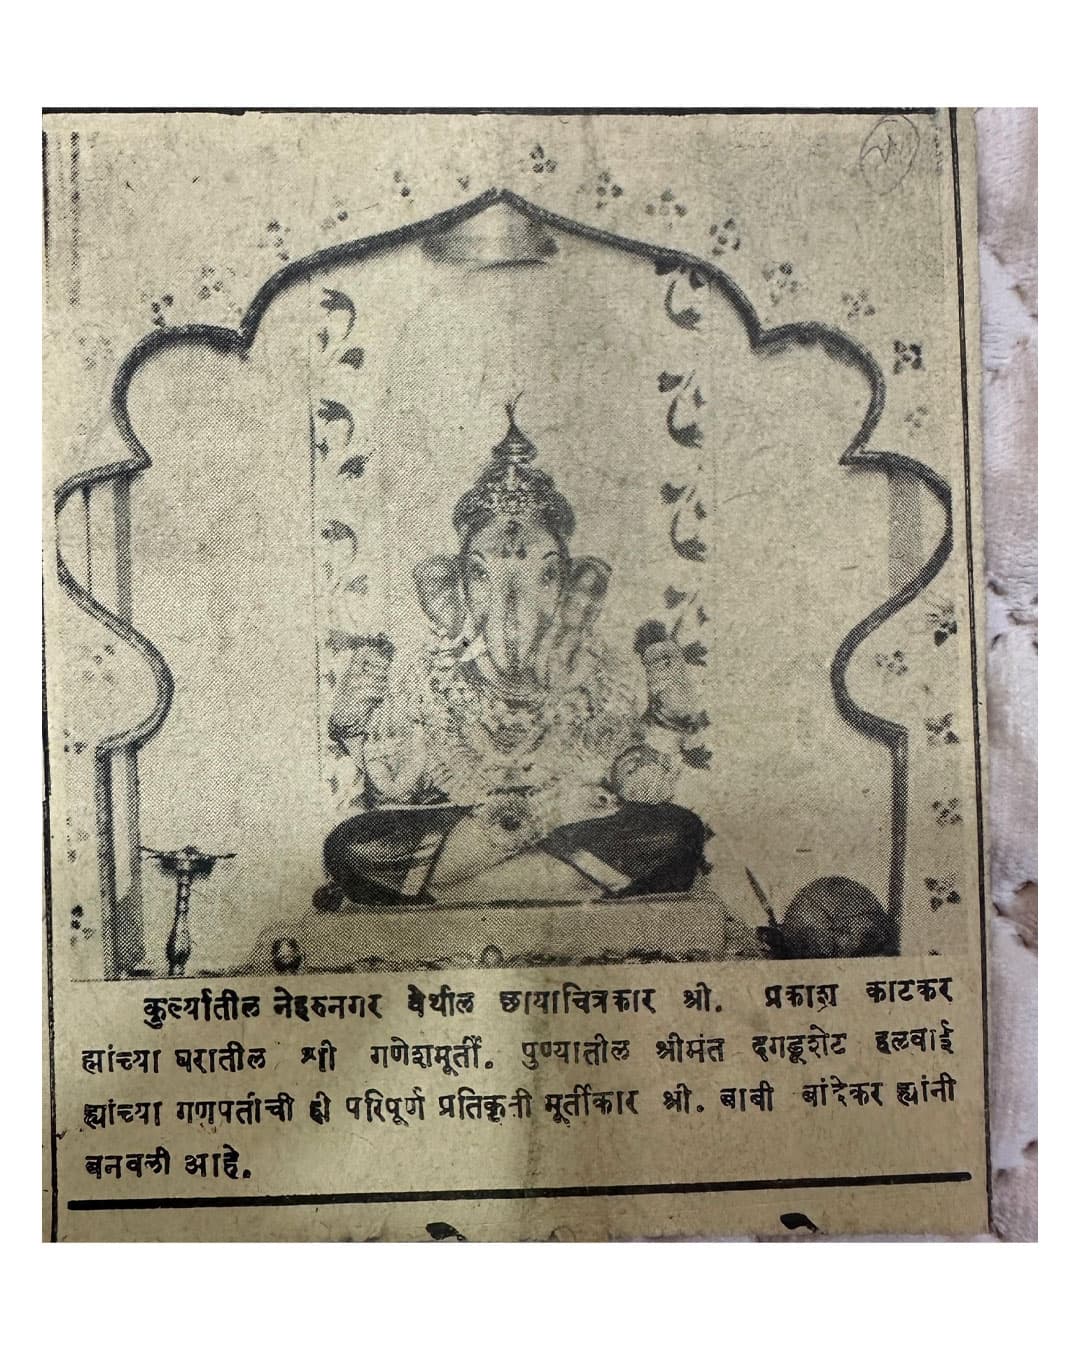 कुर्ल्यातील नेहरुनगर येथील छायाचित्रकार श्री. प्रकाश काटकर
ह्यांच्या घरातील श्री गणेशमूर्ती. पुण्यातील श्रीमंत दगडूशेट हलवाई
ह्यांच्या गणपतीची ही परिपूर्ण प्रतिकृती मूर्तीकार श्री. बाबी बांदेकर ह्यांनी
बनवली आहे.